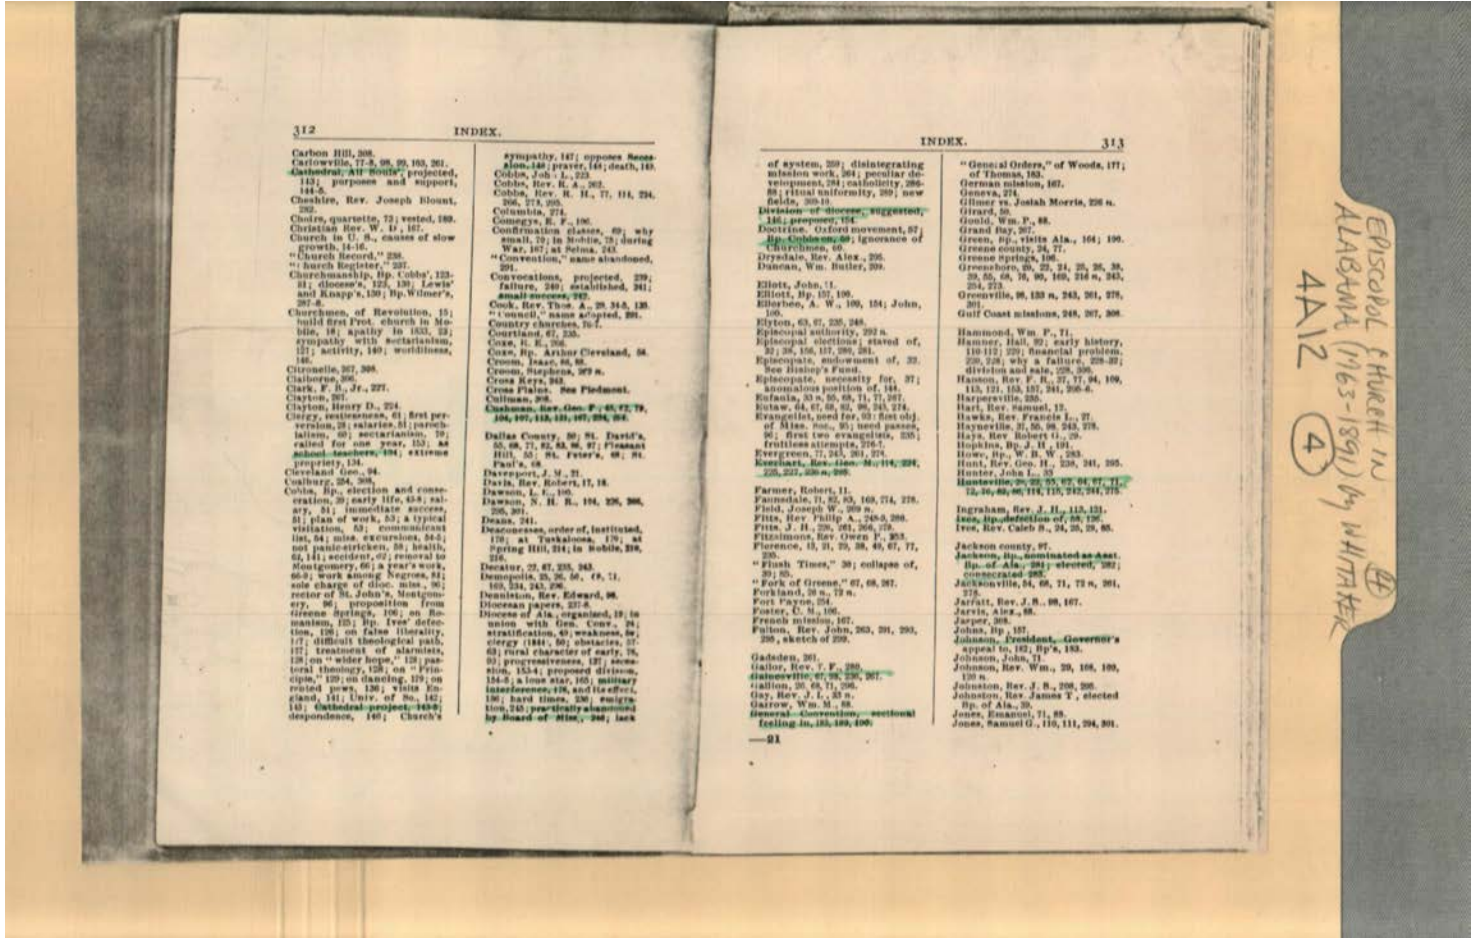 312 INDEX.
Carbon Hill, 308.
Carlowville, 77-8, 98, 99, 163, 261.
Cathedral, All Souls', projected,
143; purposes and support,
144-5.
Cheshire, Rev. Joseph Blount,
292.
Choirs, quartette, 73; vested, 189.
Christian Rev. W. D., 167.
Church in U. S., causes of slow
growth, 14-16.
"Church Record," 238.
"Church Register," 237.
Churchmanship, Bp. Cobbs', 123-
31; diocese's, 123, 130; Lewis'
and Knapp's, 130; Bp. Wilmer's,
287-8.
Churchmen, of Revolution, 15;
build first Prot. church in Mo-
bile, 18; apathy in 1833, 23;
sympathy with sectarianism,
127; activity, 140; worldliness,
146.
Citronelle, 267, 308.
Claiborne, 306.
Clark, F. B., Jr., 227.
Clayton, 267.
Clayton, Henry D., 224.
Clergy, restlessness, 61; first per-
version, 28; salaries, 51; paroch-
ialism, 60; sectarianism, 70;
called for one year, 153; as
school teachers, 194; extreme
propriety, 134.
Cleveland Geo., 94.
Coalburg, 254, 308.
Cobbs, Bp., election and conse-
cration, 39; early life, 43-8; sal-
ary, 51; immediate success,
51; plan of work, 53; a typical
visitation, 53; communicant
list, 54; miss. excursions, 54-5;
not panic-stricken, 58; health,
62, 141; accident, 62; removal to
Montgomery, 66; a year's work,
66-9; work among Negroes, 81;
sole charge of dioc. miss., 96;
rector of St. John's, Montgom-
ery, 96; proposition from
Greene Springs, 106; on Ro-
manism, 125; Bp. Ives' defec-
tion, 126; on false liberality,
127; difficult theological path,
127; treatment of alarmists,
128; on "wider hope," 128; pas-
toral theology, 128; on "Prin-
ciple," 129; on dancing, 129; on
rented pews, 136; visits En-
gland, 141; Univ. of So., 142;
143; Cathedral project, 143-5;
despondence, 146; Church's
sympathy, 147; opposes Seces-
sion, 148; prayer, 148; death, 149.
Cobbs, John L., 223.
Cobbs, Rev. R. A., 262.
Cobbs, Rev. R. H., 77, 114, 234,
266, 273, 295.
Columbia, 274.
Comegys, E. F., 106.
Confirmation classes, 69; why
small, 70; in Mobile, 75; during
War, 167; at Selma, 243.
"Convention," name abandoned,
291.
Convocations, projected, 239;
failure, 240; established, 241;
small success, 242.
Cook, Rev. Thos. A., 29, 34-5, 135.
"Council," name adopted, 291.
Country churches, 76-7.
Courtland, 67, 235.
Coxe, R. E., 266.
Coxe, Bp. Arthur Cleveland, 54.
Croom, Isaac, 86, 88.
Croom, Stephens,
Cross Keys, 243.
Cross Plains. See Piedmont.
Cullman, 308.
Cushman, Rev. Geo. F.,
Dallas County, 50; St. David's,
55, 68, 77, 82, 83, 96, 97; Pleasant
Hill, 55; St. Peter's, 68; St.
Paul's, 68.
Davenport, J. M., 21.
Davis, Rev. Robert, 17, 18.
Dawson, L. E., 106.
Dawson, N. H. R.,
295, 301.
Deans, 241.
Deaconesses, order of, instituted,
176; at Tuskaloosa, 176; at
Spring Hill, 214; in Mobile,
216.
Decatur, 22, 67, 235, 243.
Demopolis, 25, 26, 56, 69, 71,
169, 234, 243, 296.
Denniston, Rev. Edward, 98.
Diocesan papers, 237-8.
Diocese of Ala., organized, 19; in
union with Gen. Conv., 24;
stratification, 49; weakness,
clergy (1844), 50; obstacles, 57-
63; rural character of early, 76,
93; progressiveness, 127; seces-
sion, 153-4; proposed division,
154-5; a lone star, 165; military
interference, 176, and its effect,
156; hard times, 236; emigra-
tion, 245; practically abandoned
by Board of Miss., 246; lack
INDEX. 313
of system, 259; disintegrating
mission work, 264; peculiar de-
velopment, 284; catholicity, 286-
88; ritual uniformity, 289; new
fields, 309-10.
Division of diocese, suggested,
146; proposed, 154.
Doctrine. Oxford movement, 57;
Bp. Cobbs on, 59; ignorance of
Churchmen, 60.
Drysdale, Rev. Alex., 206.
Duncan, Wm. Butler, 209.
Eliott, John, 71.
Elliott, Bp. 157, 190.
Ellerbee, A. W., 109, 154; John,
100.
Elyton, 63, 67, 235, 248.
Episcopal authority, 292 n.
Episcopal elections; staved of,
32; 38, 156, 157, 280, 281.
Episcopate, endowment of, 32.
See Bishop's Fund.
Episcopate, necessity for, 37;
anomalous position of, 144.
Eufaula, 33 n, 55, 68, 71, 77, 267.
Eutaw, 64, 67, 68, 82, 96, 243, 274.
Evangelist, need for, 93; first obj.
of Miss. Soc., 95; need passes,
96; first two evangelists, 235;
fruitless attempts, 276-7.
Evergreen, 77, 243, 261, 278.
Everhart, Rev. Geo. M., 114, 224,
225, 227, 236 n, 268.
Farmer, Robert, 11.
Faunsdale, 71, 82, 83, 169, 274, 278.
Field, Joseph W., 209 n.
Fitts, Rev. Philip A., 248-9, 266.
Fitts, J. H., 226, 261, 266, 279.
Fitzsimons, Rev. Owen P., 253.
Florence, 13, 21, 29, 38, 49, 67, 77,
235.
"Flush Times," 36; collapse of,
39; 85.
"Fork of Greene," 67, 68, 267.
Forkland, 26 n, 72 n.
Fort Payne, 254.
Foster, C. M., 106.
French mission, 167.
Fulton, Rev. John, 263, 291, 293,
295, sketch of 299.
Gadsden, 261.
Gailor, Rev. T. F., 280.
Gainesville, 67, 98, 236, 267.
Gallion, 26, 68, 71, 296.
Gay, Rev. J. L., 23 n.
Garrow, Wm. M., 88.
General Convention, sectional
feeling in, 183, 189, 190.
—21
"General Orders," of Woods, 177;
of Thomas, 183.
German mission, 167.
Geneva, 274.
Gilmer vs. Josiah Morris, 226 n.
Girard, 50.
Gould, Wm. P., 88.
Grand Bay, 267.
Green, Bp., visits Ala., 164; 190.
Greene county, 24, 77.
Greene Springs, 106.
Greensboro, 20, 22, 24, 25, 26, 38,
39, 55, 68, 76, 96, 169, 216 n, 243,
254, 273.
Greenville, 98, 133 n, 243, 261, 278,
301.
Gulf Coast missions, 248, 267, 308.
Hammond, Wm. P., 71.
Hamner, Hall, 92; early history,
110-112; 220; financial problem,
220, 228; why a failure, 228-32;
division and sale, 228, 306.
Hanson, Rev. F. R., 37, 77, 94, 109,
113, 121, 153, 157, 241, 295-6.
Harpersville, 235.
Hart, Rev. Samuel, 12.
Hawks, Rev. Francis L., 27.
Hayneville, 37, 55, 98, 243, 278.
Hays, Rev Robert G., 29.
Hopkins, Bp. J. H., 191.
Howe, Bp., W. B. W., 283.
Hunt, Rev. Geo. H., 238, 241, 295.
Hunter, John L., 35
Huntsville, 20, 22, 55, 62, 64, 67, 71,
72, 76, 82, 86, 114, 115, 242, 244, 275.
Ingraham, Rev. J. H., 113, 121.
Ives, Bp., defection of, 58, 126.
Ives, Rev. Caleb S., 24, 25, 29, 85.
Jackson county, 97.
Jackson, Bp., nominated as Asst.
Bp. of Ala., 281; elected, 282;
consecrated 283.
Jacksonville, 54, 68, 71, 72 n, 261,
278.
Jarratt, Rev. J. S., 98, 167.
Jarvis, Alex., 88.
Jasper, 308.
Johns, Bp, 157.
Johnson, President, Governor's
appeal to, 182; Bp's, 183.
Johnson, John, 71.
Johnson, Rev. Wm., 29, 108, 109,
120 n.
Johnston, Rev. J. S., 208, 295.
Johnston, Rev. James T, elected
Bp. of Ala., 39.
Jones, Emanuel, 71, 88.
Jones, Samuel G., 110, 111, 294, 301.
EPISCOPOL CHURCH IN
ALABAMA (1763-1891) by WHITAKER
4A12
4